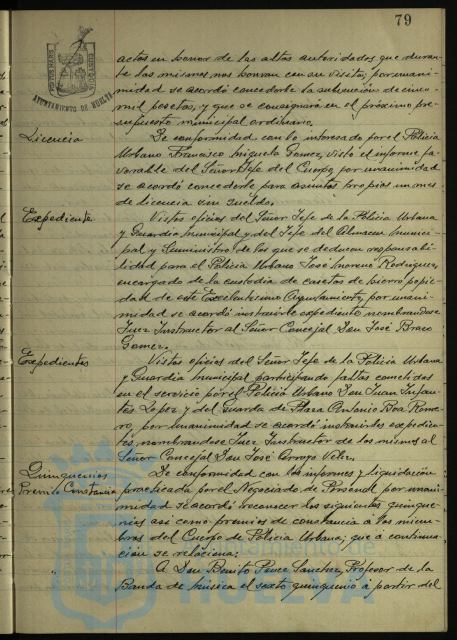 79
PORTUS MARIS
CUSTODIA
AYUNTAMIENTO DE HUELVA
actos en honor de las altas autoridades que duran-
te las mismas nos honran con su visita, por unani-
midad se acordó concederle la subvención de cinco
mil pesetas, y que se consignará en el próximo pre-
supuesto municipal ordinario.
Licencia
De conformidad con lo interesado por el Policia
Urbano Francisco Migueta Gomez, visto el informe fa-
vorable del Señor Jefe del Cuerpo, por unanimidad
se acordó concederle para asuntos propios un mes
de licencia sin sueldo.
Expediente
Vistos oficios del Señor Jefe de la Policia Urbana
y Guardia Municipal y del Jefe del Almacen Munici-
pal y Suministro de los que se deducen responsabi-
lidad para el Policia Urbano José Moreno Rodriguez,
encargado de la custodia de casetas de hierro popie-
dad de este Excelentisimo Ayuntamiento, por unani-
midad se acordó instruirle expediente nombrandose
Juez Instructor al Señor Concejal Don José Bravo
Gomez.
Expedientes
Vistos oficios del Señor Jefe de la Policia Urbana
y Guardia Municipal participando faltas cometidas
en el servicio por el Policia Urbano Don Juan Infan-
tes Lopez y del Guarda de Plaza Antonio Boa Rome-
ro, por unanimidad se acordó instruirles expedien-
tes, nombrandose Juez Instructor de los mismos al
Señor Concejal Don José Arroyo Velez.
Quinquenios
Premio Constancia
De conformidad con los informes y liquidación
practicada por el Negociado de Personal por unani-
midad se acordó reconocer los siguientes quinque-
nios asi como premios de constancia a los miem-
bros del Cuerpo de Policia Urbana; que a continua-
ción se relaciona:
A Don Benito Perez Sanchez, Profesor de la
Banda de Musica el sexto quinquenio a partir del
Ayuntamiento de
HUELVA